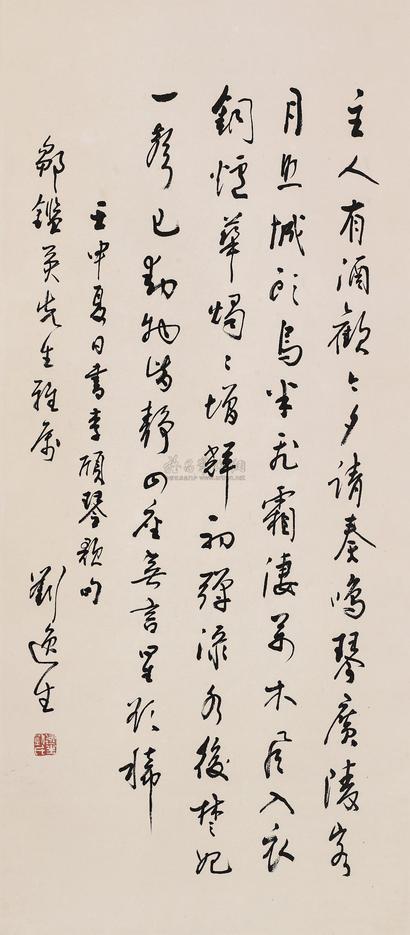 主人有酒歡今夕請奏鳴琴廣陵客
月照城頭烏半飛霜淒萬木風入衣
銅爐華燭〻增輝初彈淥水後楚妃
一聲已動物皆靜四座無言星欲稀
壬申夏日書李頎琴歌句
鄒鑑英先生雅屬
劉逸生